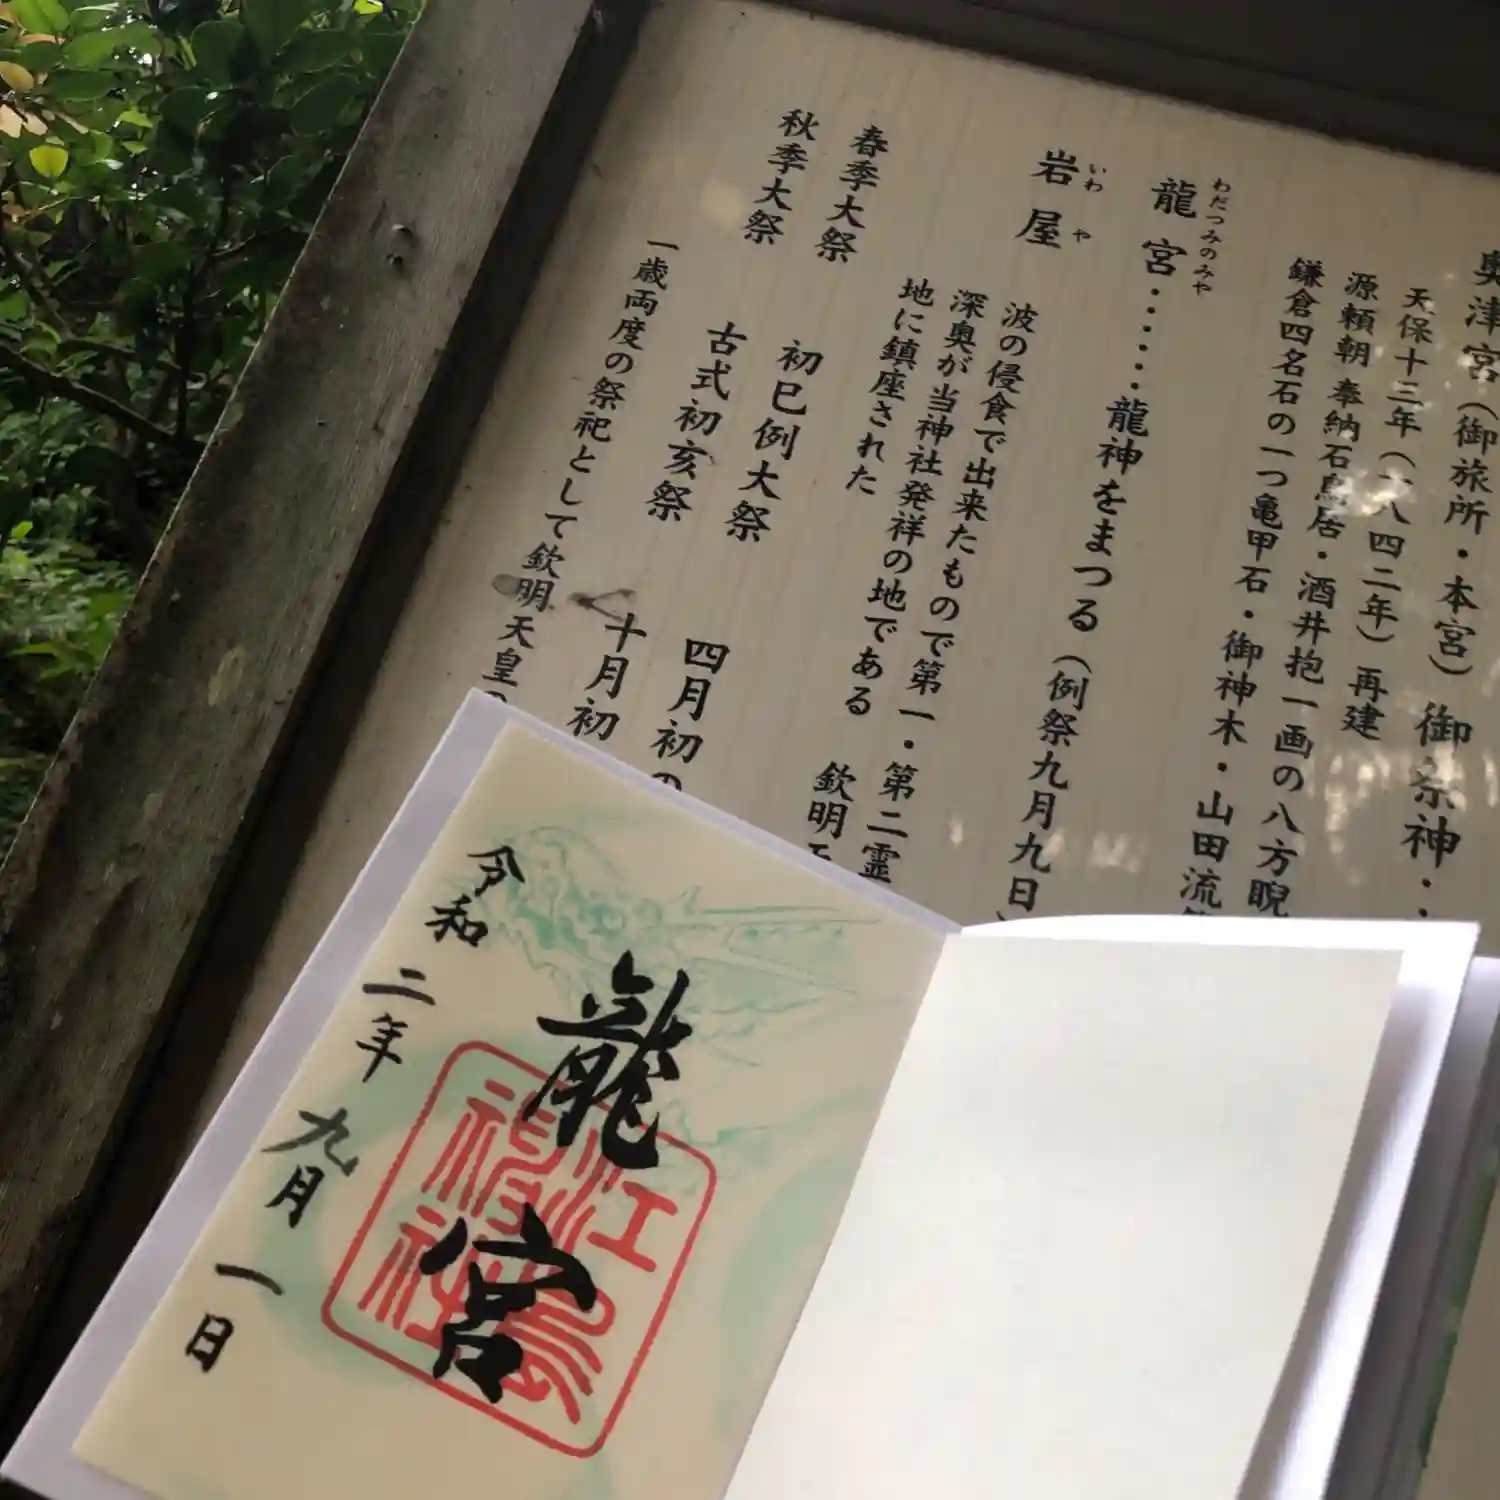 奥津宮(御旅所・本宮)御祭神・
天保十三年(一八四二年)再建
源頼朝奉納石鳥居・酒井抱一画の八方睨
鎌倉四名石の一つ亀甲石・御神木・山田流
わだつみのみや
龍宮・・・・・龍神をまつる(例祭九月九日)
いわや
岩屋
波の侵食で出来たもので第一・第二霊
深奥が当神社発祥の地である 欽明
地に鎮座された
春季大祭 初巳例大祭 四月初の
秋季大祭 古式初亥祭 十月初
一歳両度の祭祀として欽明天皇の
龍宮
江島神社
令和二年九月一日